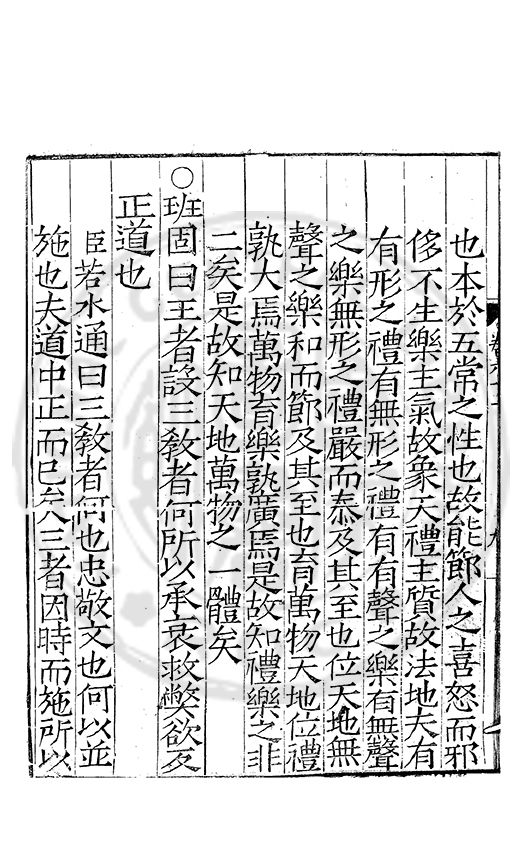 也本於五常之性也故能節人之喜怒而邪
侈不生樂主氣故象天禮主質故法地夫有
有形之禮有無形之禮有有聲之樂有無聲
之樂無形之禮嚴而泰及其至也位天地無
聲之樂和而節及其至也育萬物天地位禮
孰大焉萬物育樂孰廣焉是故知禮樂之非
二矣是故知天地萬物之一體矣
○班固曰王者設三教者何所以承衰救弊欲反
正道也
臣若水通曰三教者何也忠敬文也何以並
施也夫道中正而已矣三者因時而施所以